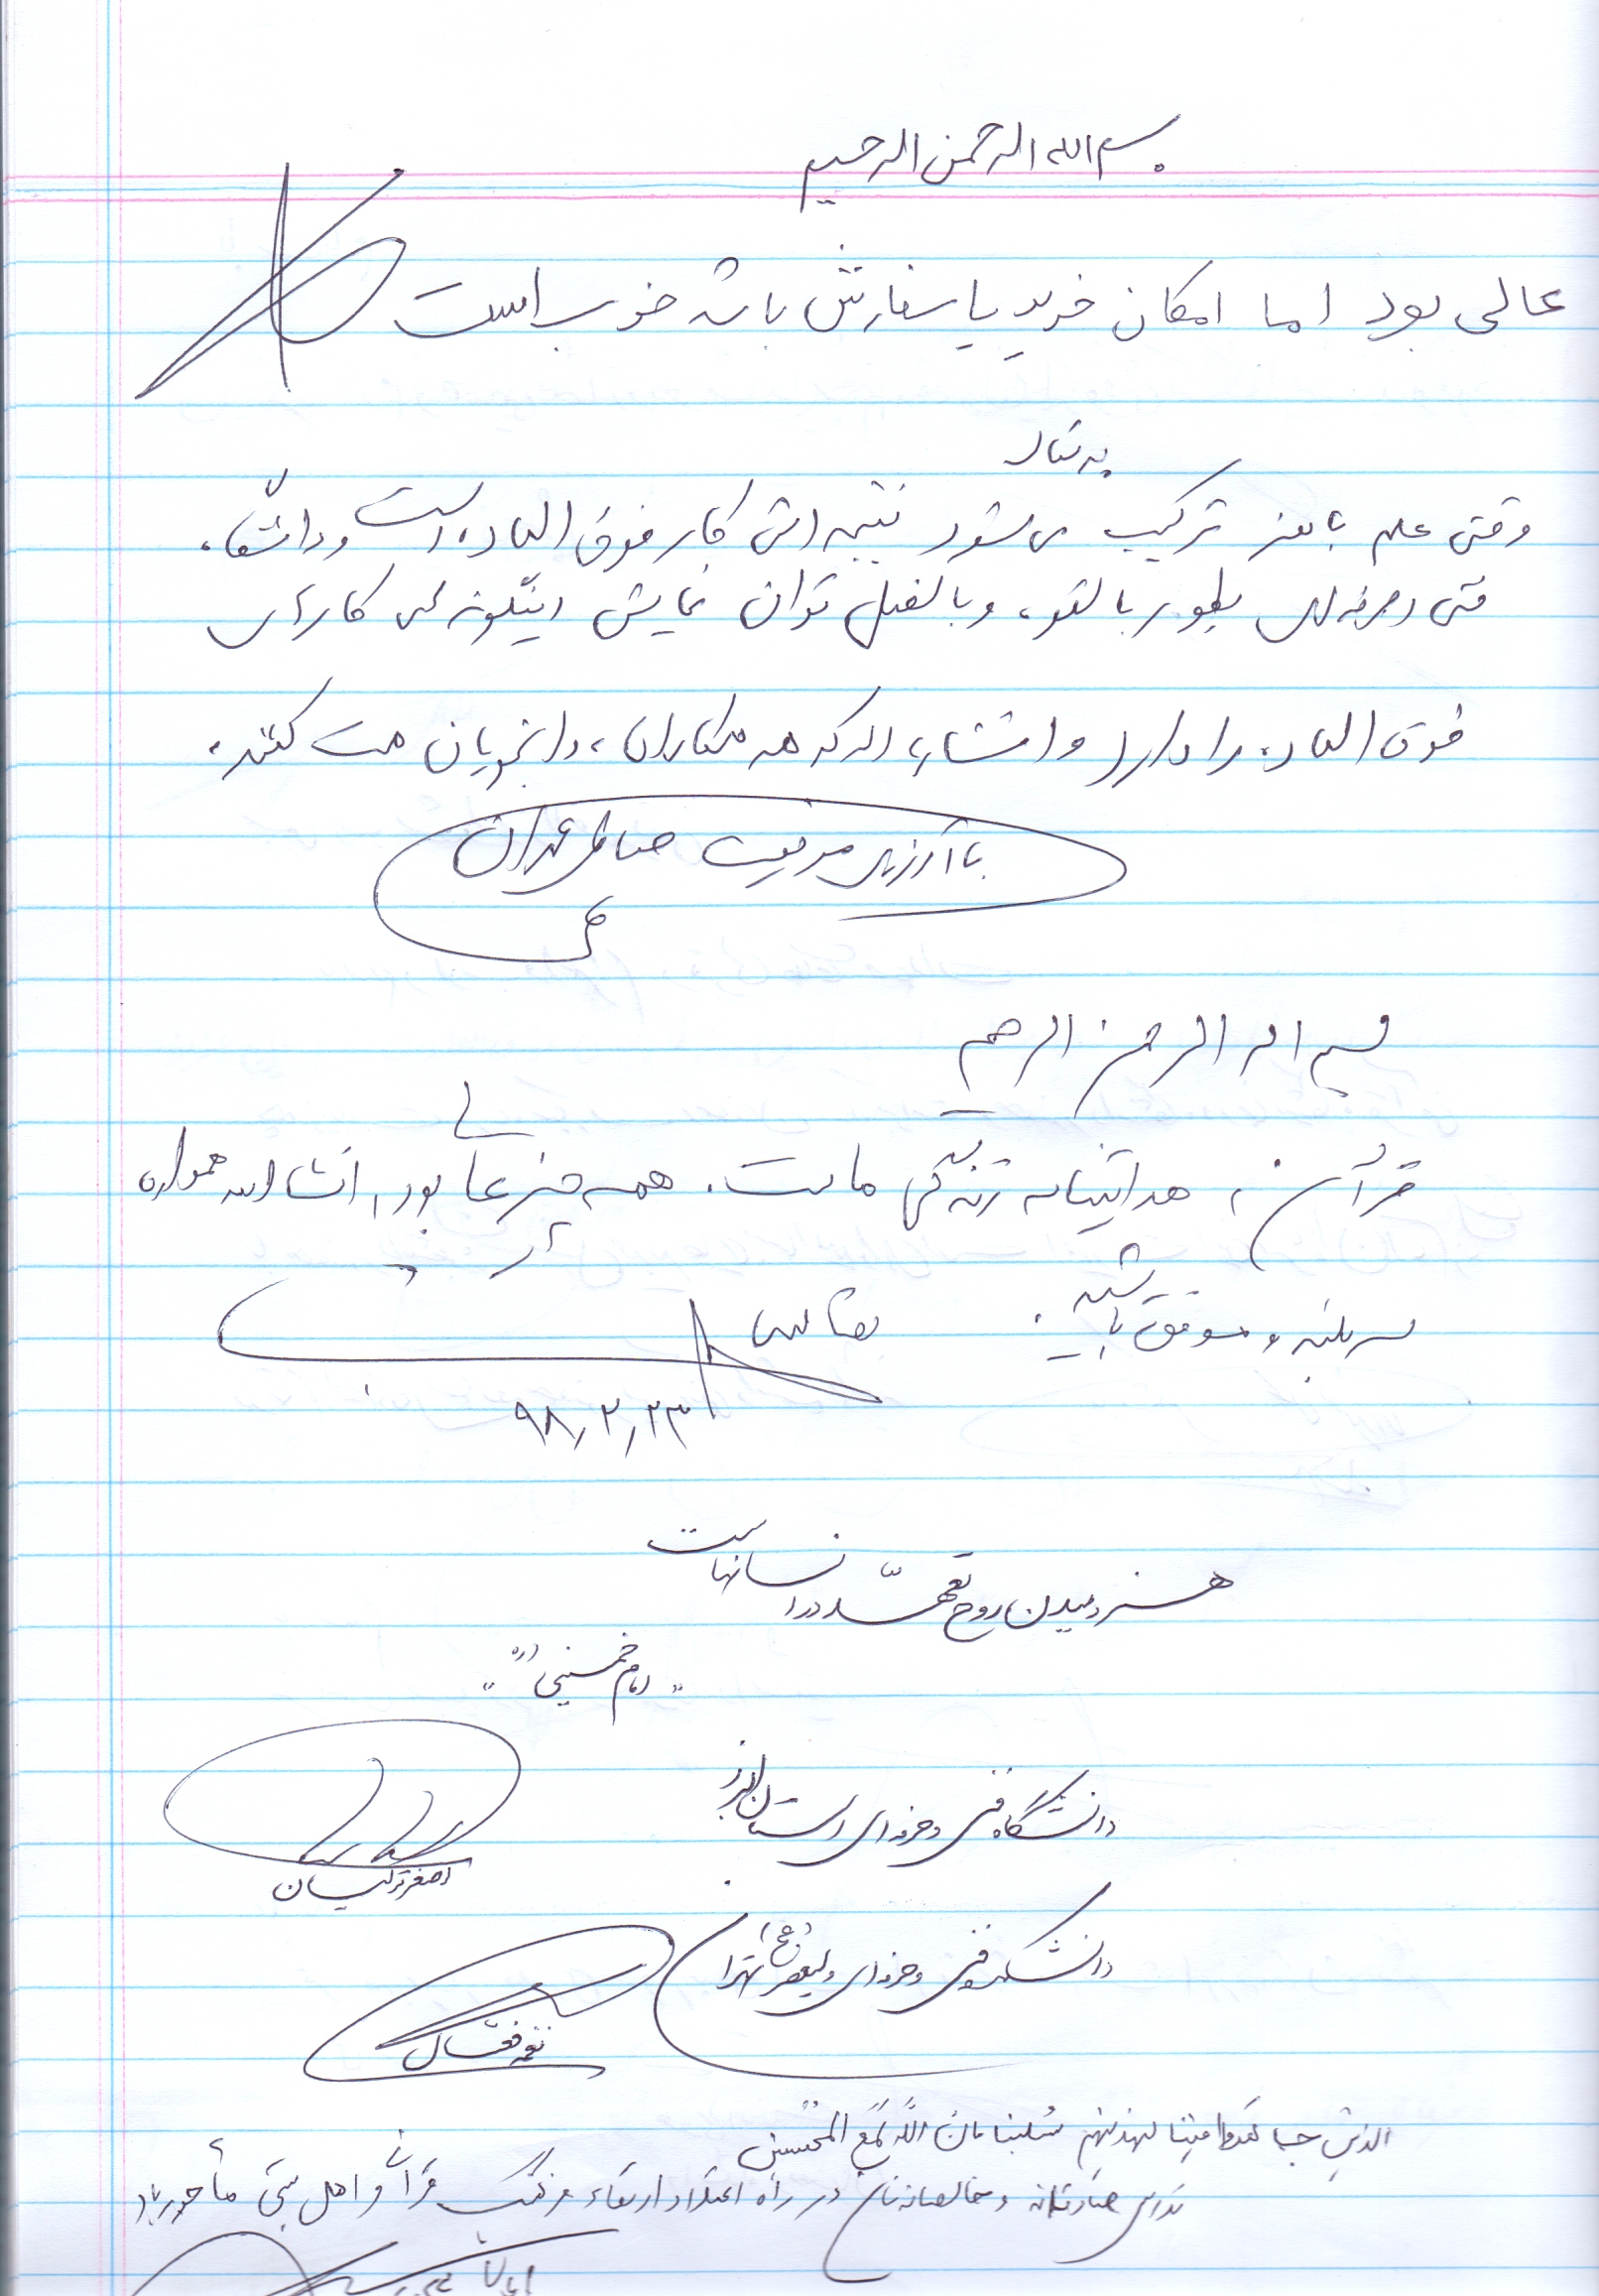 بسم الله الرحمن الرحیم
عالی بود اما امکان خرید یا سفارش باشه خوب است
وقتی علم با هنر ترکیب می شود نتیجه اش کار فوق العاده است و دانشگاه
فنی و حرفه ای بطور بالقوه و بالفعل توان نمایش اینگونه کارای
فوق العاده را دارد و انشاء الله که همه همکاران، دانشجویان همت کنند.
با آرزوی موفقیت
بسم الله الرحمن الرحیم
قرآن، هدایتنامه زندگی ماست. همه چیز عالی بود، انشاالله همواره
سربلند و موفق باشید.
۹۸٫۲٫۲۳
هنر دمیدن روح تعهّد در انسانهاست
"امام خمینی (ره)"
دانشگاه فنی و حرفه ای استان البرز
اصغر ترکیسان
دانشکده فنی و حرفه ای ولیعصر (عج) تهران
الذین جاهدوا فینا لنهدینهم سُبلنا و ان اللّه لَمَع المحسنین
تلاش صادقانه و خالصانه تان در راه اعتلا و ارتقاء فرهنگ قرآن و اهل بیتی مأجور باد